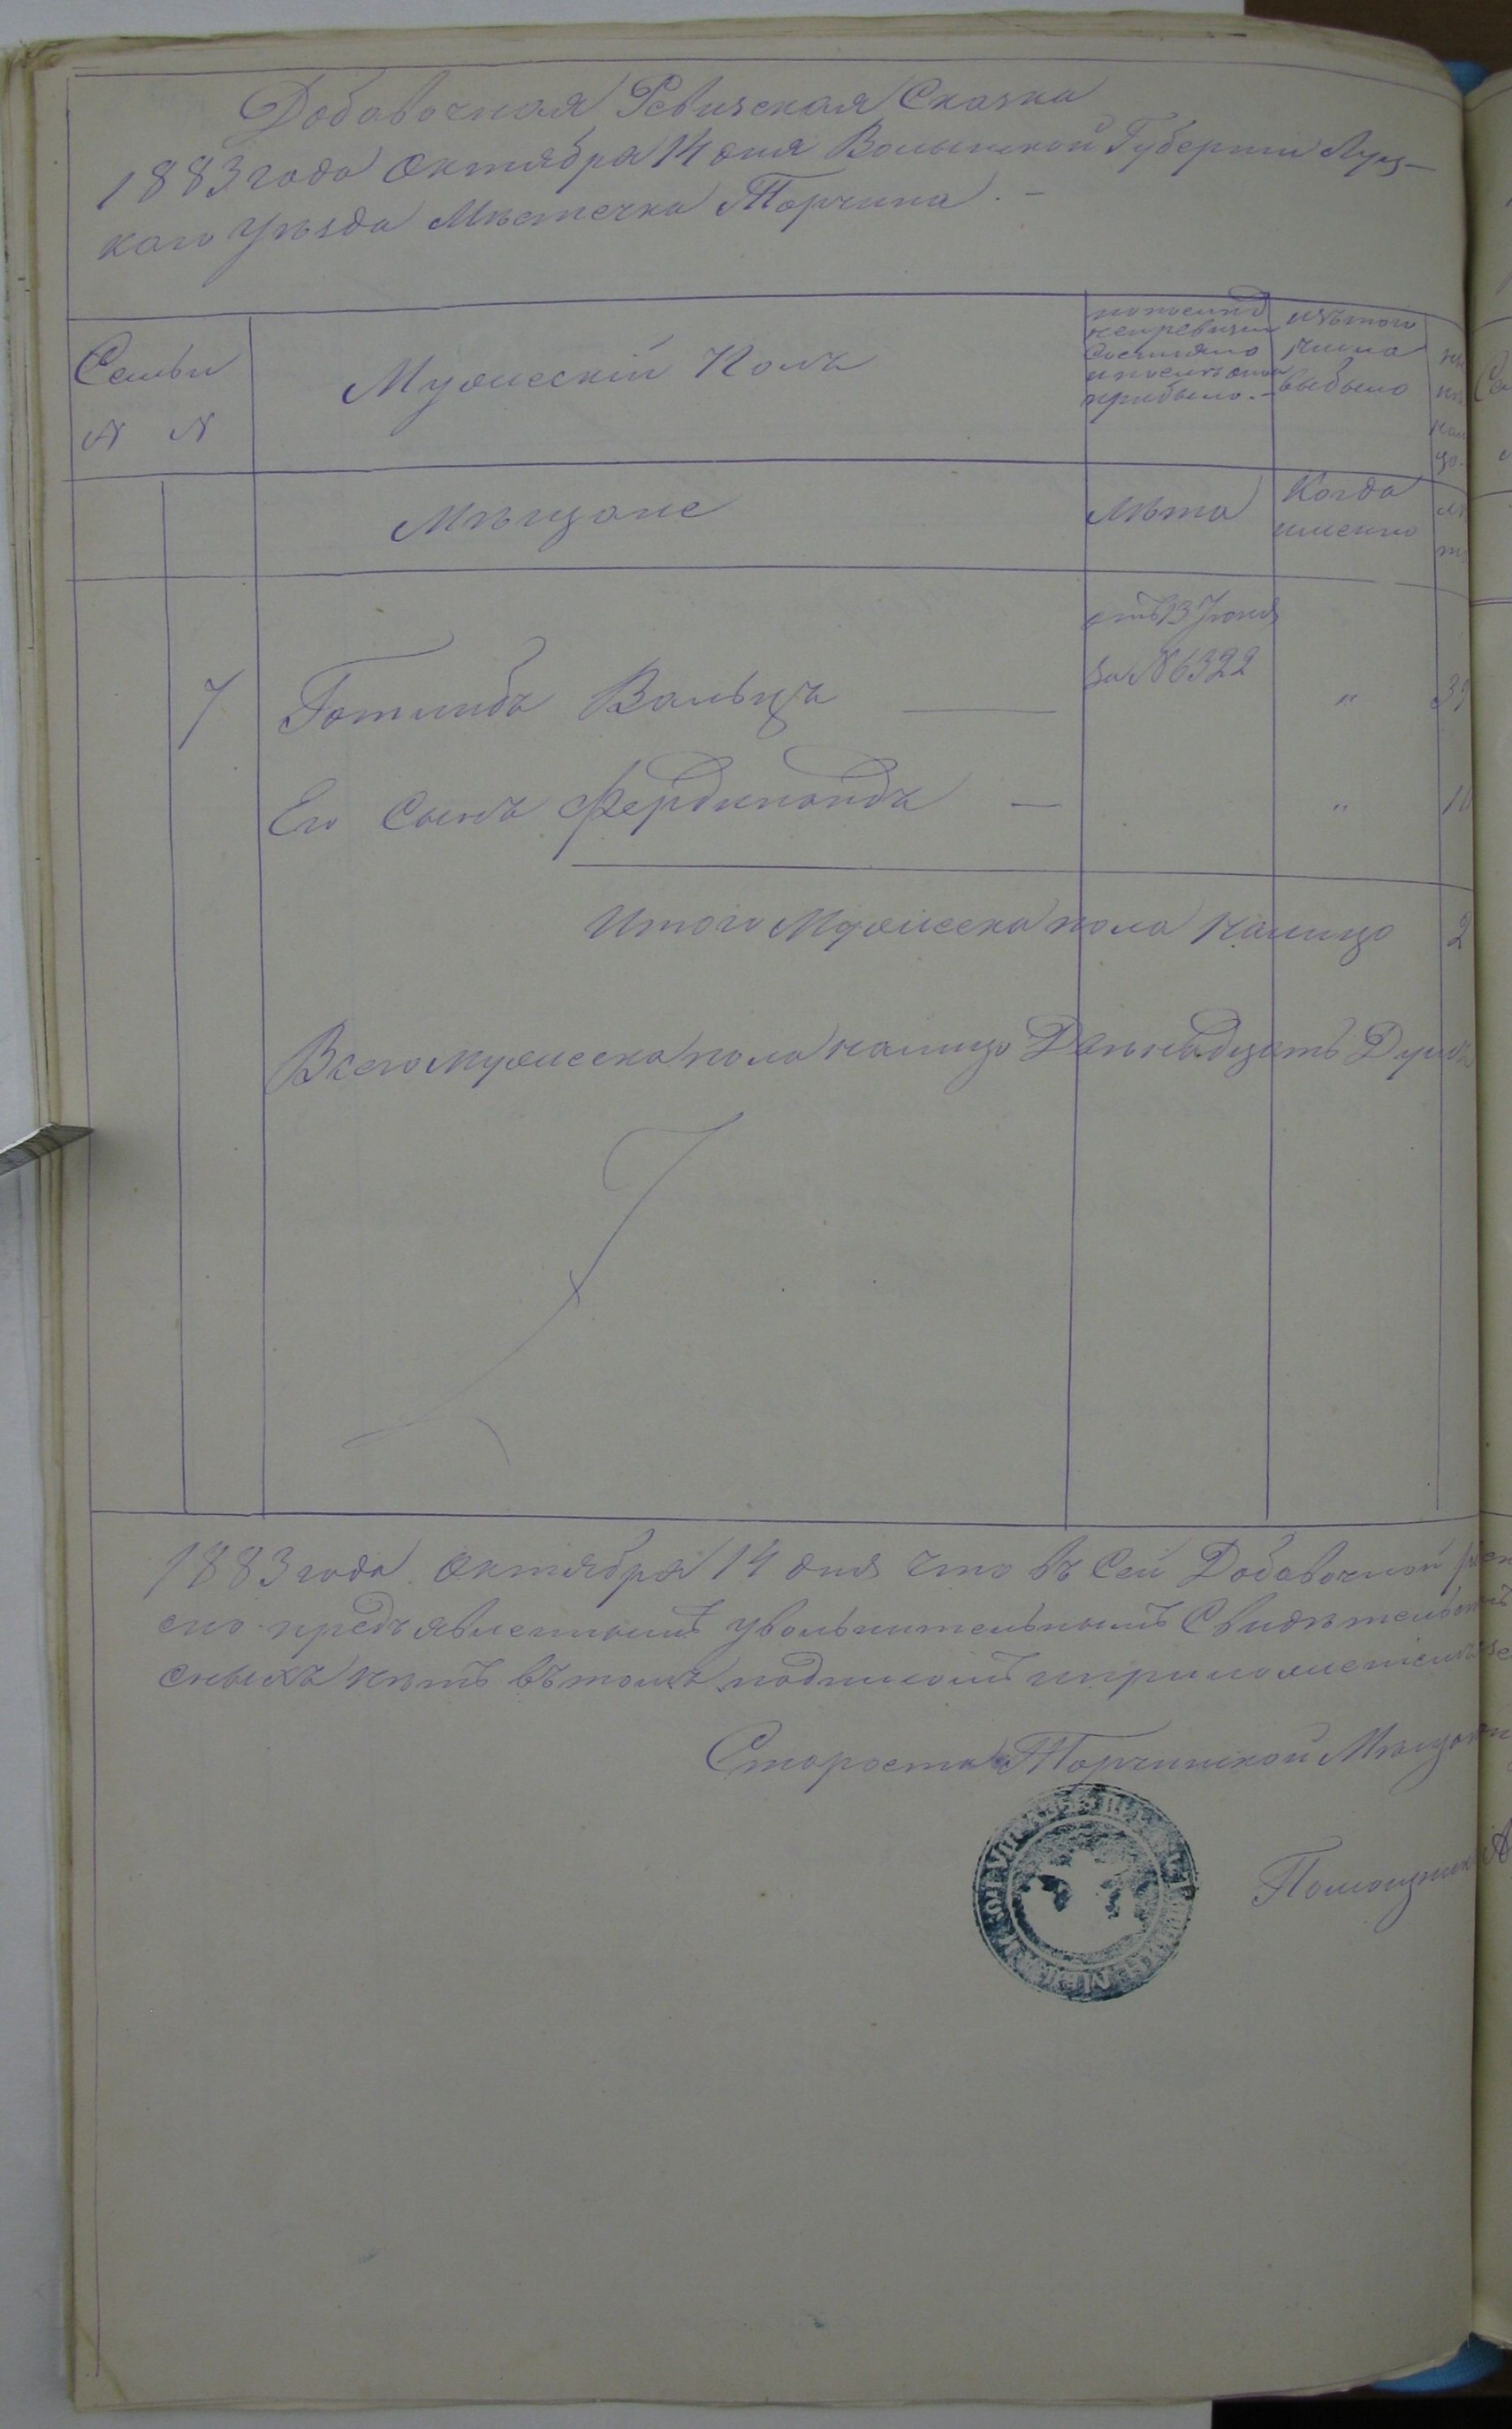 Добавочная Ревизская Сказка
1883 года Октября 14 дня Волынской Губернии Луц-
каго Уѣзда Мѣстечка Торчина. -
Семьи
N N
Мужескій Полъ
по послѣд
ней ревизіи
состояло
и послѣ онои
прибыло. -
изъ того
числа
выбыло
Мѣщане
Лѣта
Когда
именно
отъ 13 Іюня
7 Готлибъ Вальцъ — за № 6322 " 39
Его Сынъ Фердинандъ — " 10
Итого Мужеска пола на лицо 2
Всего мужеска пола на лицо Двѣнадцать Душъ
1883 года Октября 14 дня что въ сей Добавочной
сно предъявленнымъ увольнительнымъ Свидѣтельств
сныхъ нѣтъ въ томъ подписомъ и приложеніемъ
Староста Торчинской Мѣщан
Помощник